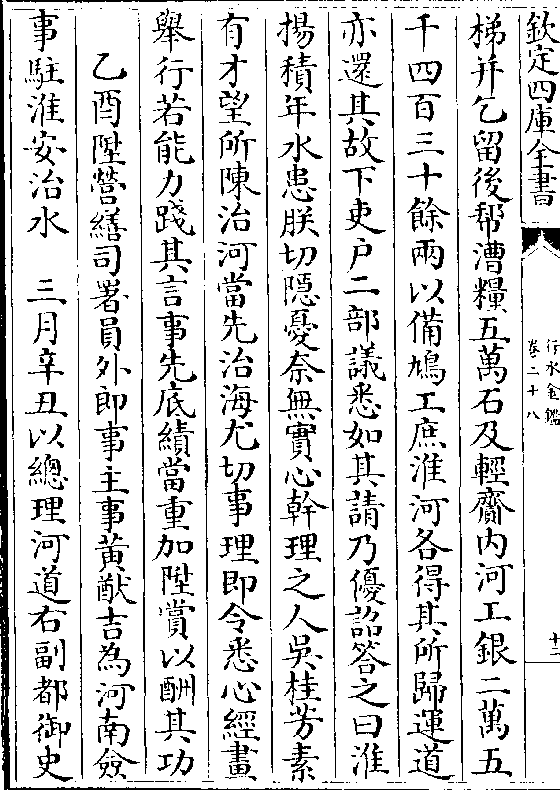 欽定四庫全書
行水金鑑
卷二十八
十二
梯并乞留後幇漕糧五萬石及輕齎内河工銀二萬五
千四百三十餘兩以備鳩工庶淮河各得其所歸運道
亦還其故下吏户二部議悉如其請乃優詔答之曰淮
揚積年水患朕切隱憂奈無實心幹理之人吳桂芳素
有才望所陳治河當先治海尤切事理即令悉心經畫
舉行若能力踐其言事先底績當重加陞賞以酬其功
乙酉陞營繕司署員外郎事主事黃猷吉為河南僉
事駐淮安治水 三月辛丑以總理河道右副都御史